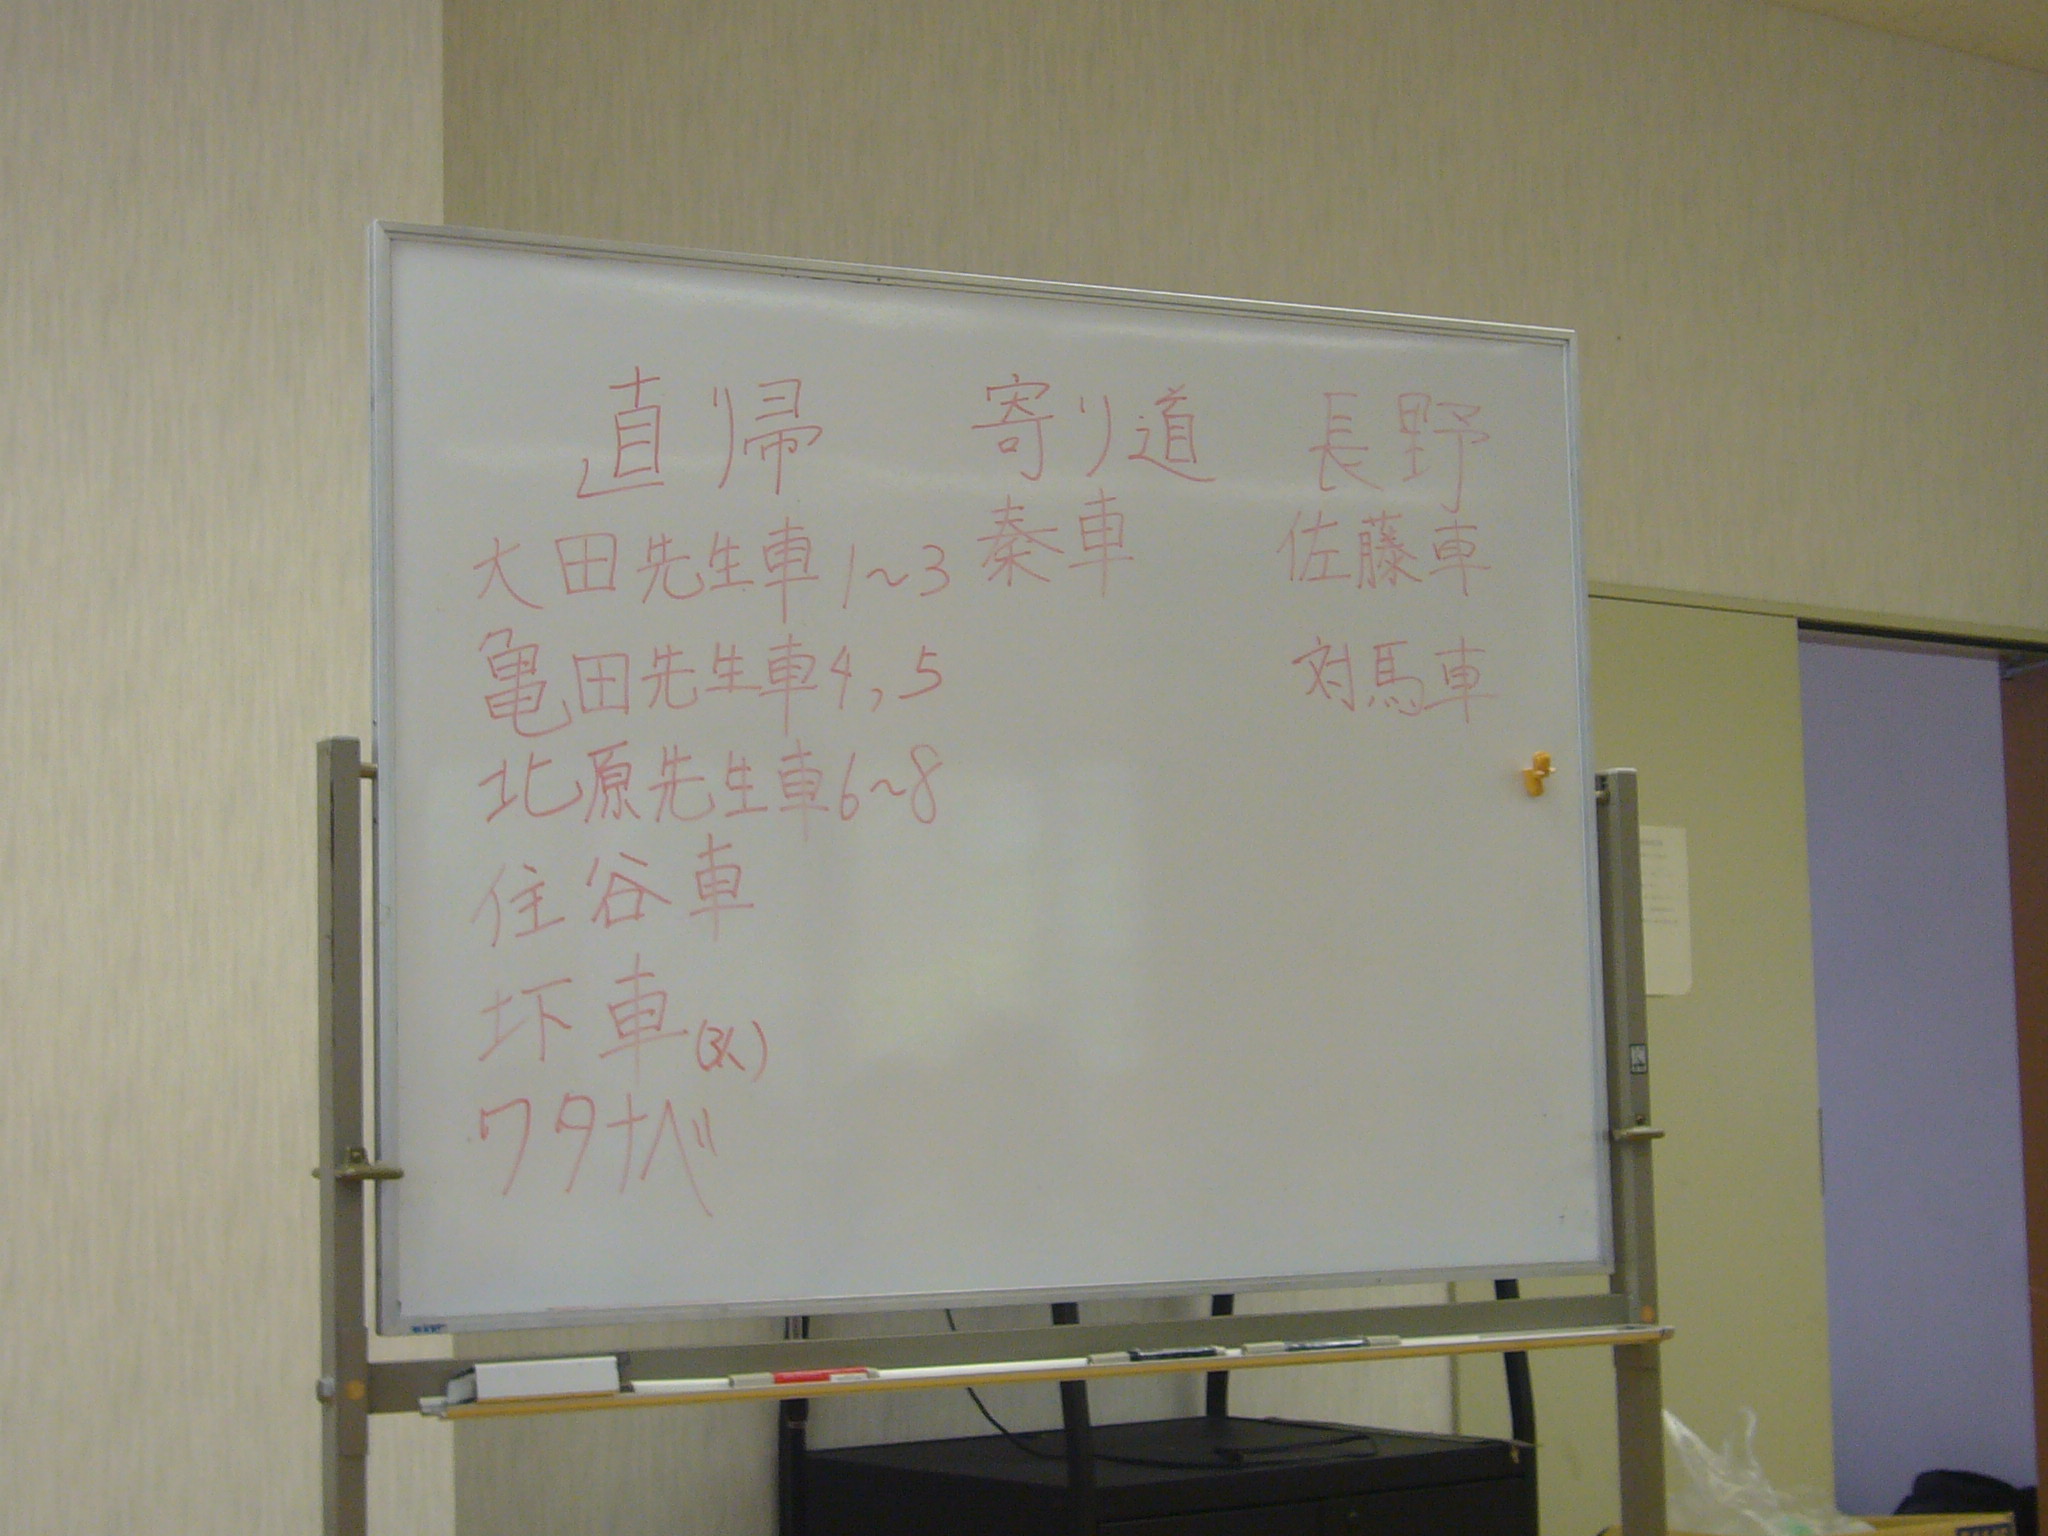 直帰
大田先生車 1~3
亀田先生車 4, 5
北原先生車 6~8
住谷車
圷車 (3人)
ワタナベ
寄り道
秦車
長野
佐藤車
対馬車